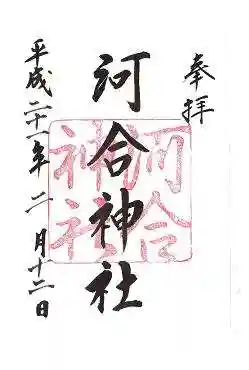 奉拝
河合神社
河合神社
平成二十一年二月十二日